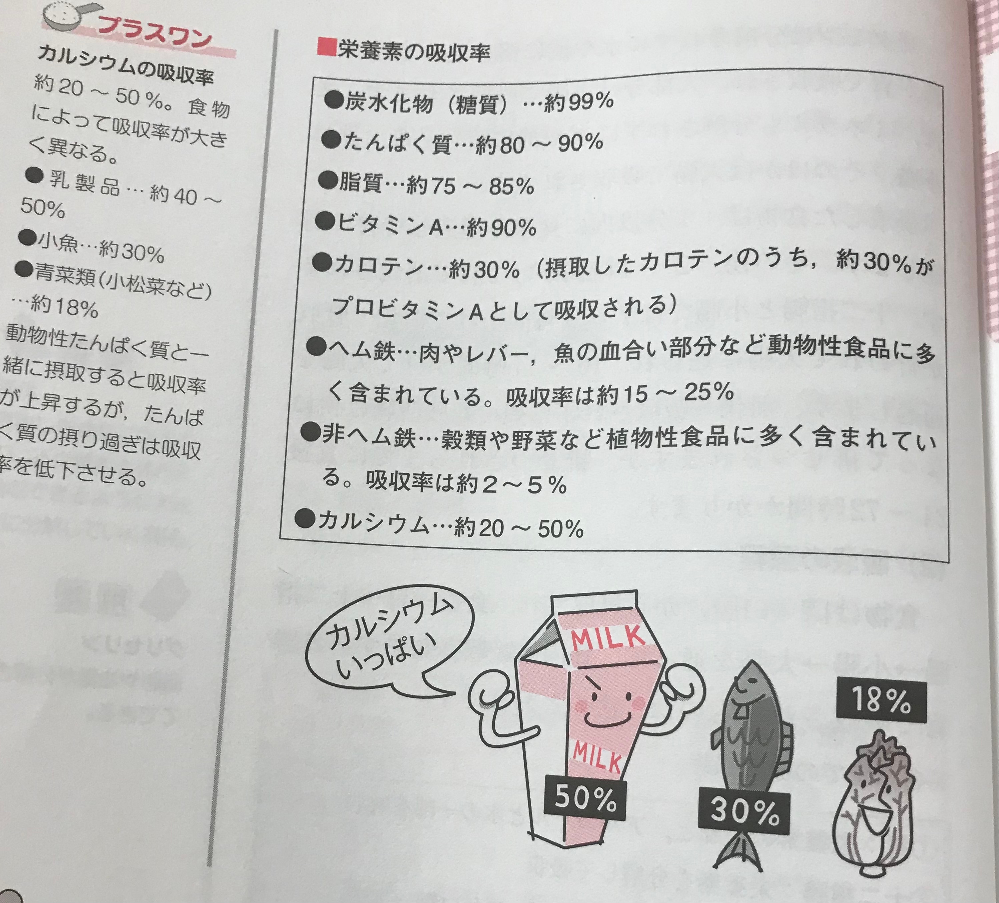 プラスワン
カルシウムの吸収率
約20～50％。食物
によって吸収率が大き
く異なる。
●乳製品…約40～
50％
●小魚…約30％
●青菜類（小松菜など）
…約18％
動物性たんぱく質と一
緒に摂取すると吸収率
が上昇するが，たんぱ
く質の摂り過ぎは吸収
率を低下させる。
■栄養素の吸収率
●炭水化物（糖質）…約99％
●たんぱく質…約80～90％
●脂質…約75～85％
●ビタミンA…約90％
●カロテン…約30％（摂取したカロテンのうち，約30％が
プロビタミンAとして吸収される）
●ヘム鉄…肉やレバー，魚の血合い部分など動物性食品に多
く含まれている。吸収率は約15～25％
●非ヘム鉄…穀類や野菜など植物性食品に多く含まれてい
る。吸収率は約2～5％
●カルシウム…約20～50％
カルシウム
いっぱい
MILK
MILK
50%
30%
18%